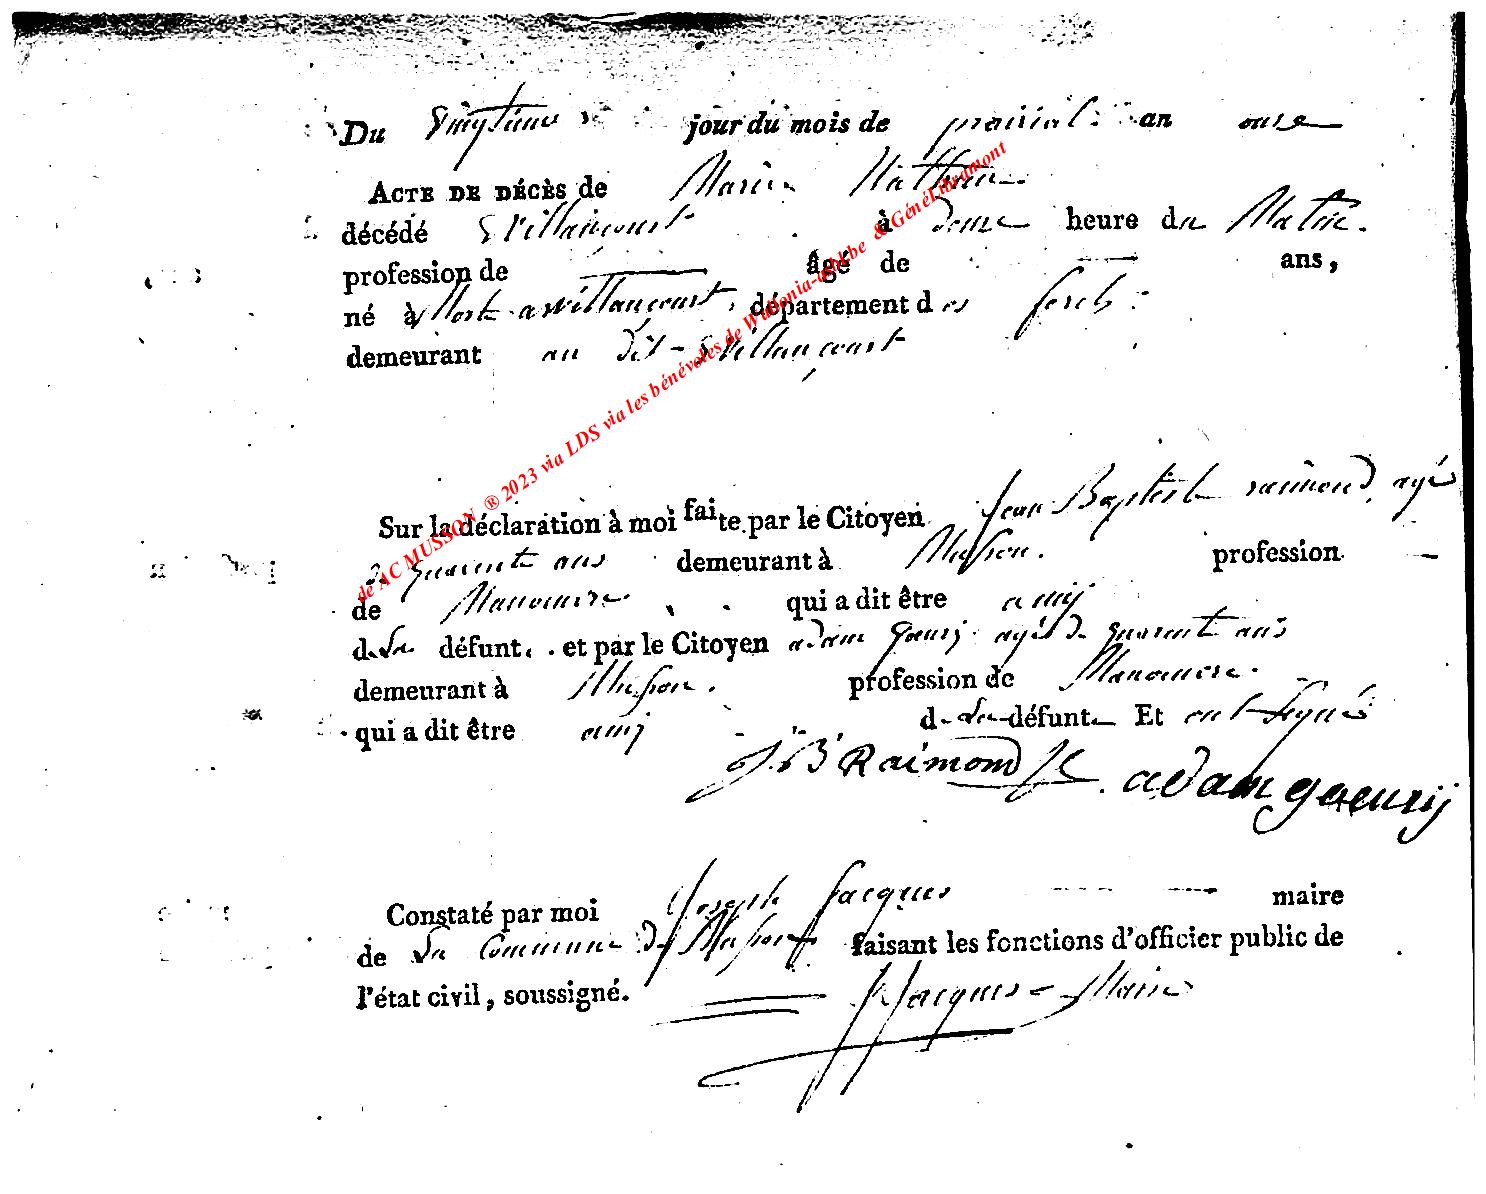 Du Vingtieme jour du mois de prairial an onze
ACTE DE DÉCÈS de Marie
décédé à Willancourt à douze heure du Matin.
profession de âgé de ans,
né à département des forets
demeurant au dit Willancourt
Sur la déclaration à moi faite par le Citoyen Jean Baptiste raimond, agé
de quarente ans demeurant à Musson. profession
de Manouvre qui a dit être amij
de La défunte. et par le Citoyen adam Goeury agé de quarente ans
demeurant à Musson. profession de Manouvre.
qui a dit être amij de La défunte Et ont signés
J. B. Raimond adam goeurij
Constaté par moi Joseph Jacques maire
de La Commune de Musson faisant les fonctions d'officier public de
l'état civil, soussigné. J Jacques Maire
de AC MUSSON ® 2023 via LDS via les bénévoles de Wallonia-asbl.be & GénéLibramont